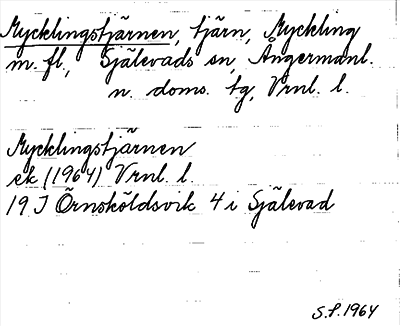 Mycklingstjärnen, tjärn, Myckling
m. fl., Själevads sn, Ångermanl.
n. doms. tg, Vrnl. l.
Mycklingstjärnen
ek (1964) Vrnl. l.
19 J Örnsköldsvik 4 i Själevad
S.P. 1964